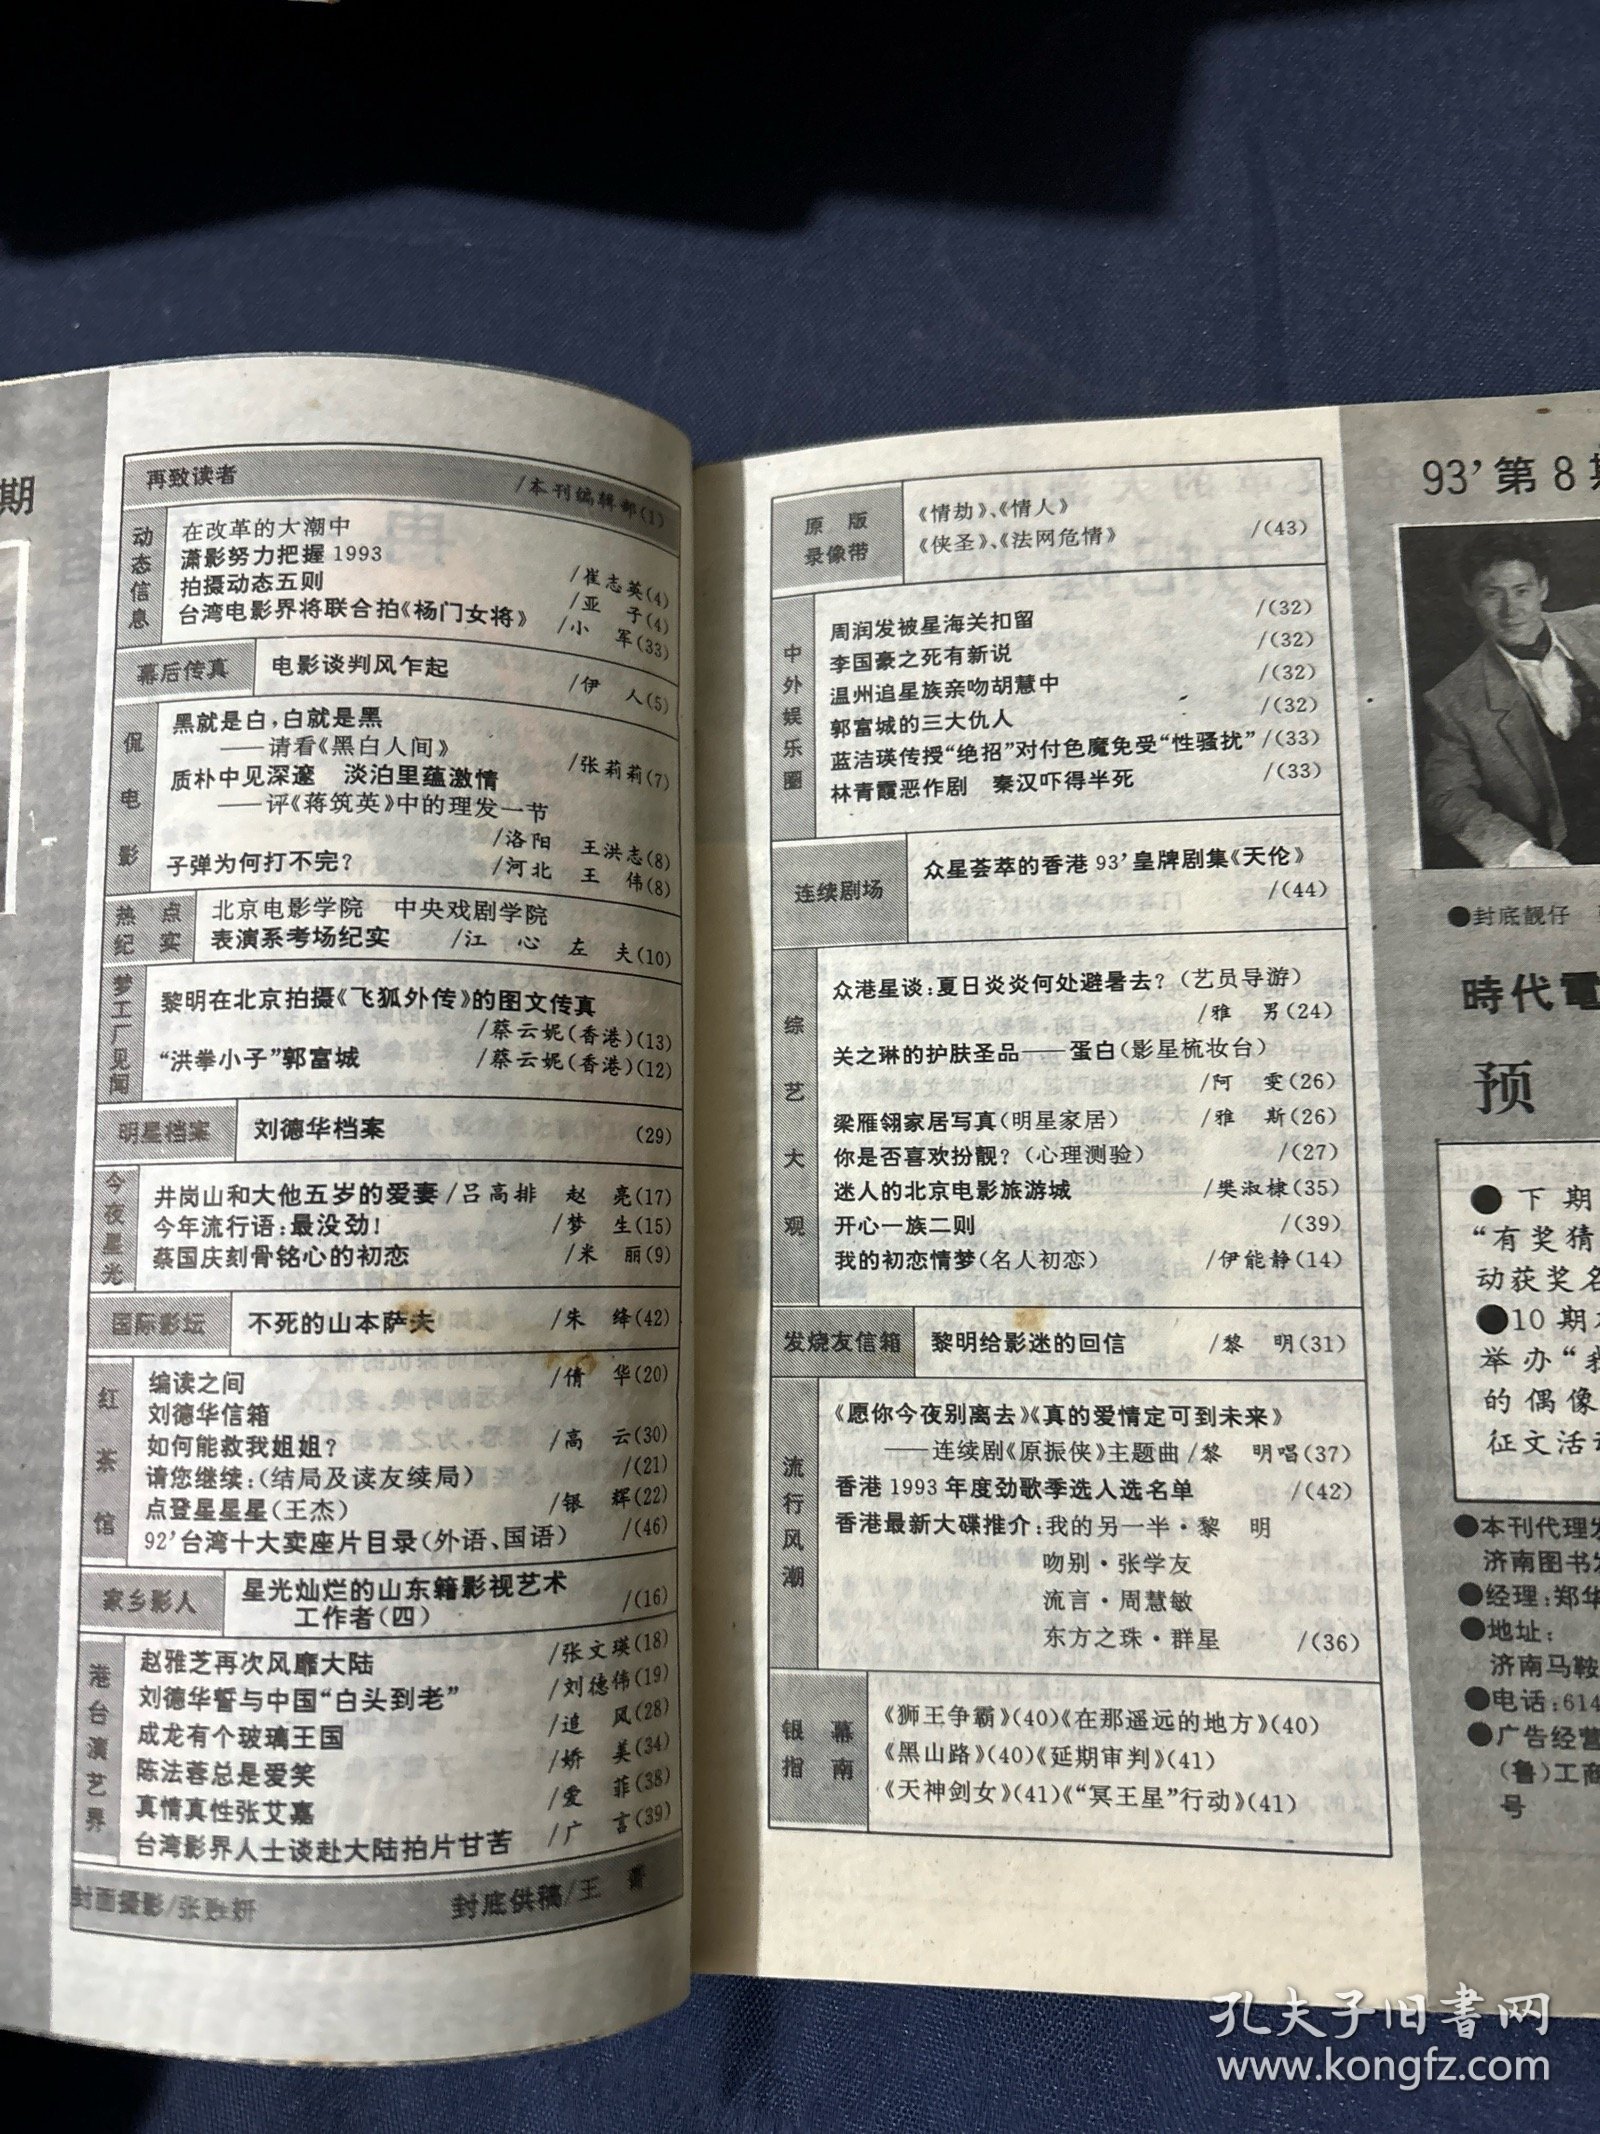 期
再致读者 /本刊编辑部(1)
动态信息
在改革的大潮中
潇影努力把握1993 /崔志英(4)
拍摄动态五则 /亚 子(4)
台湾电影界将联合拍《杨门女将》 /小 军(33)
幕后传真
电影谈判风乍起 /伊 人(5)
侃电影
黑就是白,白就是黑
——请看《黑白人间》 /张莉莉(7)
质朴中见深邃 淡泊里蕴激情
——评《蒋筑英》中的理发一节
/洛阳 王洪志(8)
子弹为何打不完? /河北 王 伟(8)
热点纪实
北京电影学院 中央戏剧学院
表演系考场纪实 /江 心 左 夫(10)
梦工厂见闻
黎明在北京拍摄《飞狐外传》的图文传真
/蔡云妮(香港)(13)
“洪拳小子”郭富城 /蔡云妮(香港)(12)
明星档案
刘德华档案 (29)
今夜星光
井岗山和大他五岁的爱妻/吕高排 赵 亮(17)
今年流行语:最没劲! /梦 生(15)
蔡国庆刻骨铭心的初恋 /米 丽(9)
国际影坛
不死的山本萨夫 /朱 绛(42)
红茶馆
编读之间 /倩 华(20)
刘德华信箱
如何能救我姐姐? /高 云(30)
请您继续:(结局及读友续局) /(21)
点登星星星(王杰) /银 辉(22)
92’台湾十大卖座片目录(外语、国语) /(46)
家乡影人
星光灿烂的山东籍影视艺术
工作者(四) /(16)
港台演艺界
赵雅芝再次风靡大陆 /张文瑛(18)
刘德华誓与中国“白头到老” /刘德伟(19)
成龙有个玻璃王国 /追 风(28)
陈法蓉总是爱笑 /娇 美(34)
真情真性张艾嘉 /爱 菲(38)
台湾影界人士谈赴大陆拍片甘苦 /广 言(39)
封面摄影/张甦妍 封底供稿/王 菁
原版
录像带
《情劫》、《情人》
《侠圣》、《法网危情》 /(43)
中外娱乐圈
周润发被星海关扣留 /(32)
李国豪之死有新说 /(32)
温州追星族亲吻胡慧中 /(32)
郭富城的三大仇人 /(32)
蓝洁瑛传授“绝招”对付色魔免受“性骚扰” /(33)
林青霞恶作剧 秦汉吓得半死 /(33)
连续剧场
众星荟萃的香港93’皇牌剧集《天伦》
/(44)
综艺大观
众港星谈:夏日炎炎何处避暑去?(艺员导游)
/雅 男(24)
关之琳的护肤圣品——蛋白(影星梳妆台)
/阿 雯(26)
梁雁翎家居写真(明星家居) /雅 斯(26)
你是否喜欢扮靓?(心理测验) /(27)
迷人的北京电影旅游城 /樊淑棣(35)
开心一族二则 /(39)
我的初恋情梦(名人初恋) /伊能静(14)
发烧友信箱
黎明给影迷的回信 /黎 明(31)
流行风潮
《愿你今夜别离去》《真的爱情定可到未来》
——连续剧《原振侠》主题曲/黎 明唱(37)
香港1993年度劲歌季选入选名单 /(42)
香港最新大碟推介:我的另一半·黎 明
吻别·张学友
流言·周慧敏
东方之珠·群星 /(36)
银幕指南
《狮王争霸》(40)《在那遥远的地方》(40)
《黑山路》(40)《延期审判》(41)
《天神剑女》(41)《“冥王星”行动》(41)
93’第8期
●封底靓仔
時代電
预
●下期
“有奖猜
动获奖名
●10期
举办“我
的偶像
征文活动
●本刊代理发
济南图书发
●经理:郑华
●地址:
济南马鞍
●电话:614
●广告经营
(鲁)工商
号
孔夫子旧書网
www.kongfz.com